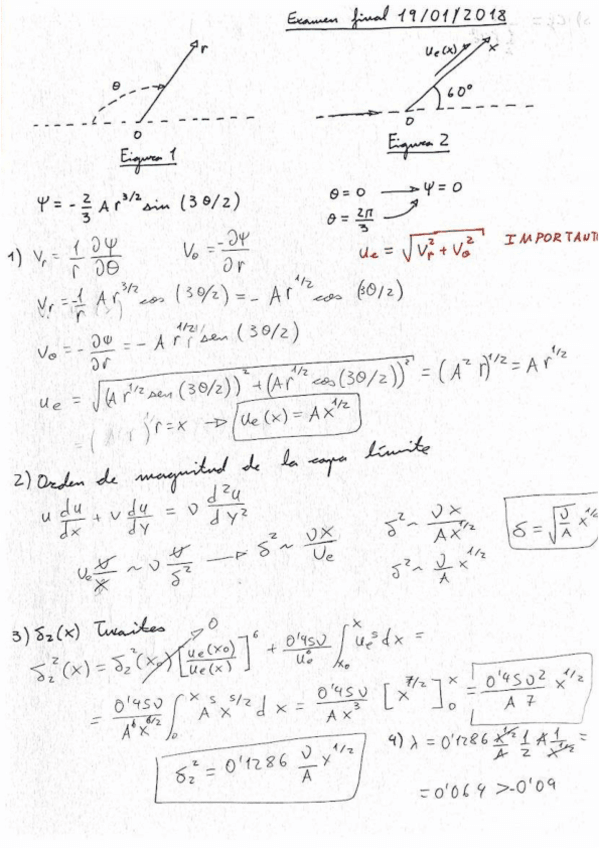 Examen final 19/01/2018
r
θ
0
Figura 1
u_e(x)
x
60°
0
Figura 2
Ψ = -2/3 A r^3/2 sin (3θ/2)
θ = 0 → Ψ = 0
θ = 2π/3
1) V_r = 1/r ∂Ψ/∂θ   V_θ = -∂Ψ/∂r
u_e = √(V_r^2 + V_θ^2) IMPORTANT
V_r = -1/r A r^3/2 cos (3θ/2) = - A r^1/2 cos (3θ/2)
V_θ = - ∂Ψ/∂r = - A r^1/2 sen (3θ/2)
u_e = √((A r^1/2 sen (3θ/2))^2 + (A r^1/2 cos(3θ/2))^2) = (A^2 r)^1/2 = A r^1/2
r = x → u_e(x) = A x^1/2
2) Orden de magnitud de la capa límite
u du/dx + v du/dy = ν d^2u/dy^2
δ^2 ~ νx/Ax^1/2
δ = √(ν/A) x^1/
U_e U/x ~ ν U/δ^2 → δ^2 ~ νx/U_e
δ^2 ~ ν/A x^1/2
3) δ_2(x) Twaites
0
δ_2^2(x) = δ_2^2(x_0) [u_e(x_0)/u_e(x)]^6 + 0'45ν/u_e^6 ∫_x_0^x u_e^5 dx =
= 0'45ν/A^6x^6/2 ∫_0^x A^5 x^5/2 dx = 0'45ν/Ax^3 [x^7/2]_0^x = 0'45ν2/A7 x^1/2
δ_2^2 = 0'1286 ν/A x^1/2
4) λ = 0'1286 x^1/2/A 1/2 A 1/x^1/2 =
= 0'064 > -0'09